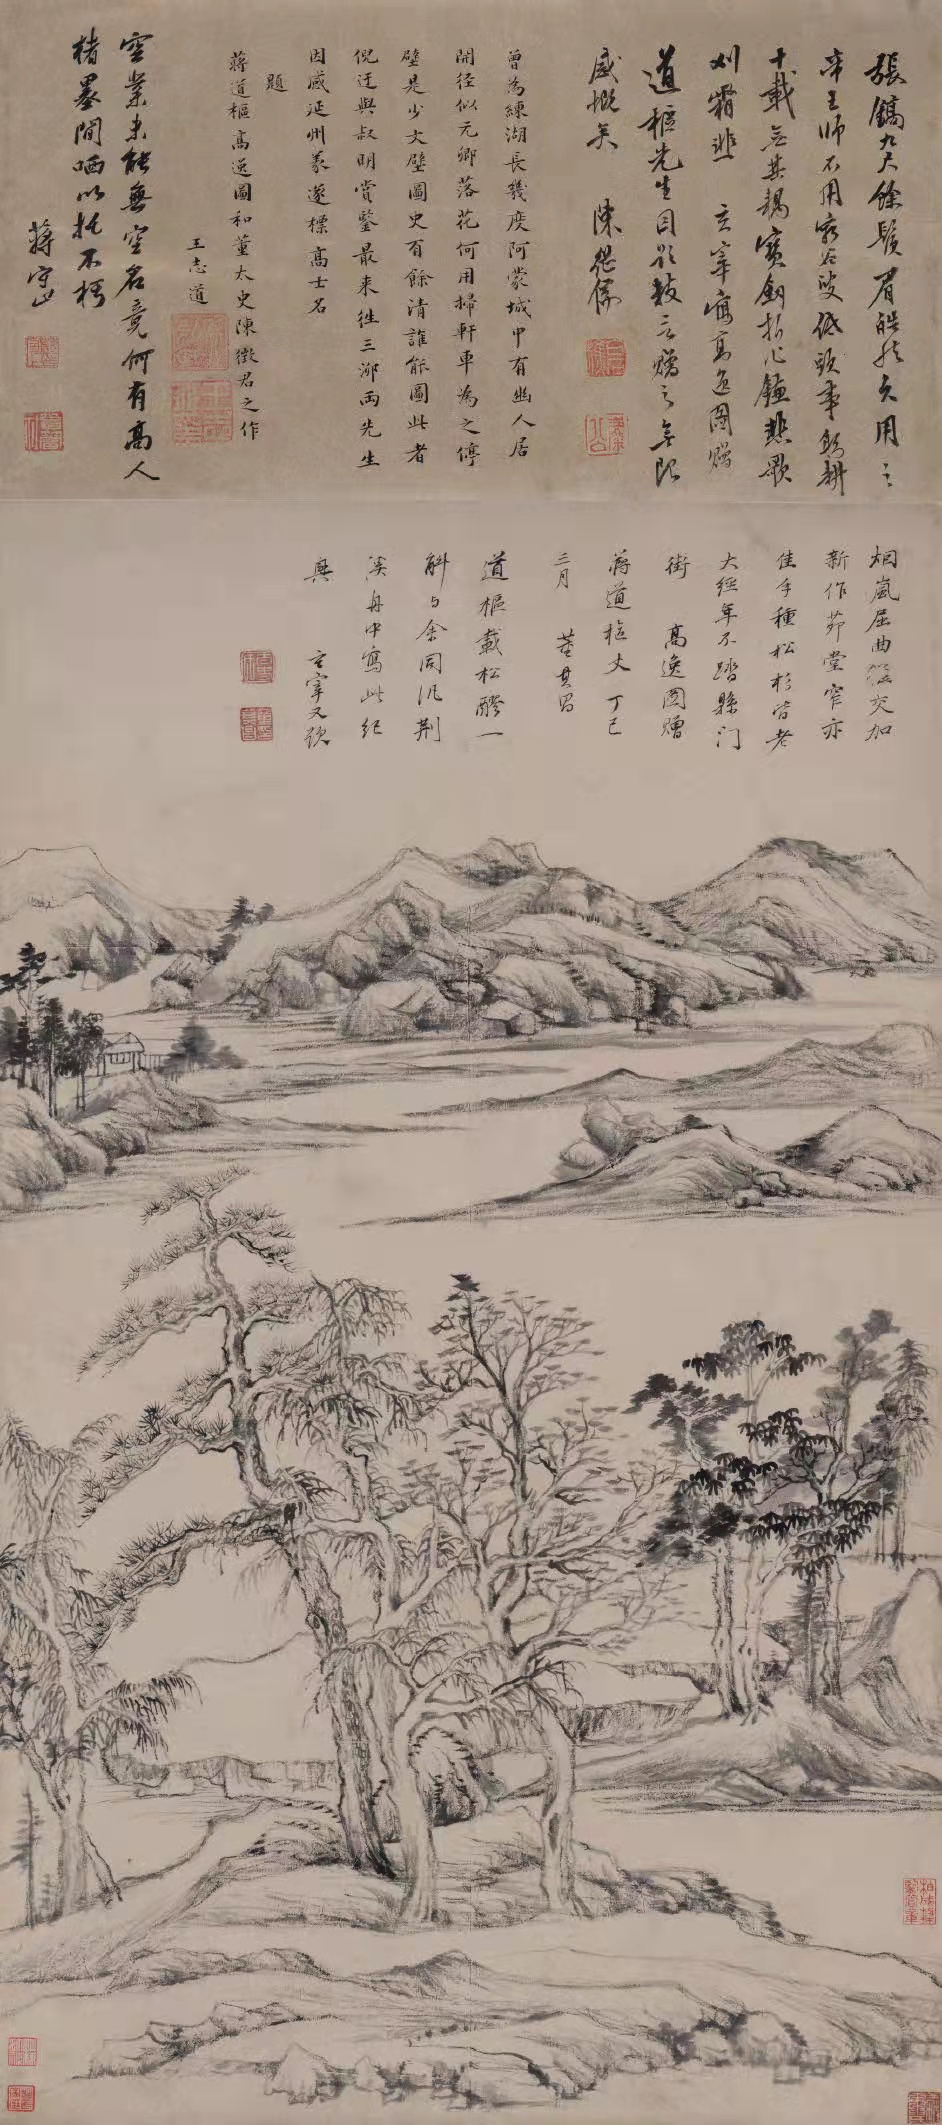 張鎬九尺餘鬚眉皓然久用之
帝王師不用窮谷叟低頭事躬耕
十載無其耦寶劍拆作鎌悲歌
刈霜韭 玄宰寫高逸圖贈
道樞先生因題數言贈之無限
感慨矣 陳繼儒
曾為練湖長幾度阿蒙城中有幽人居
開径似元卿落花何用掃軒車為之停
壁是少文壁圖史有餘清誰能圖此者
倪迂與叔明賞鑒最来徃三泖両先生
因感延州義遂標高士名
題
蔣道樞高逸圖和董太史陳徵君之作
王志道
空業未能無空名竟何有高人
楮墨間哂以托不朽
蔣守止
烟嵐屈曲徑交加
新作茆堂窄亦
佳手種松杉皆老
大經年不踏縣門
街 高逸圖贈
蔣道樞丈 丁巳
三月 董其昌
道樞載松醪一
斛与余同汎荆
溪舟中寫此紀
興 玄宰又題